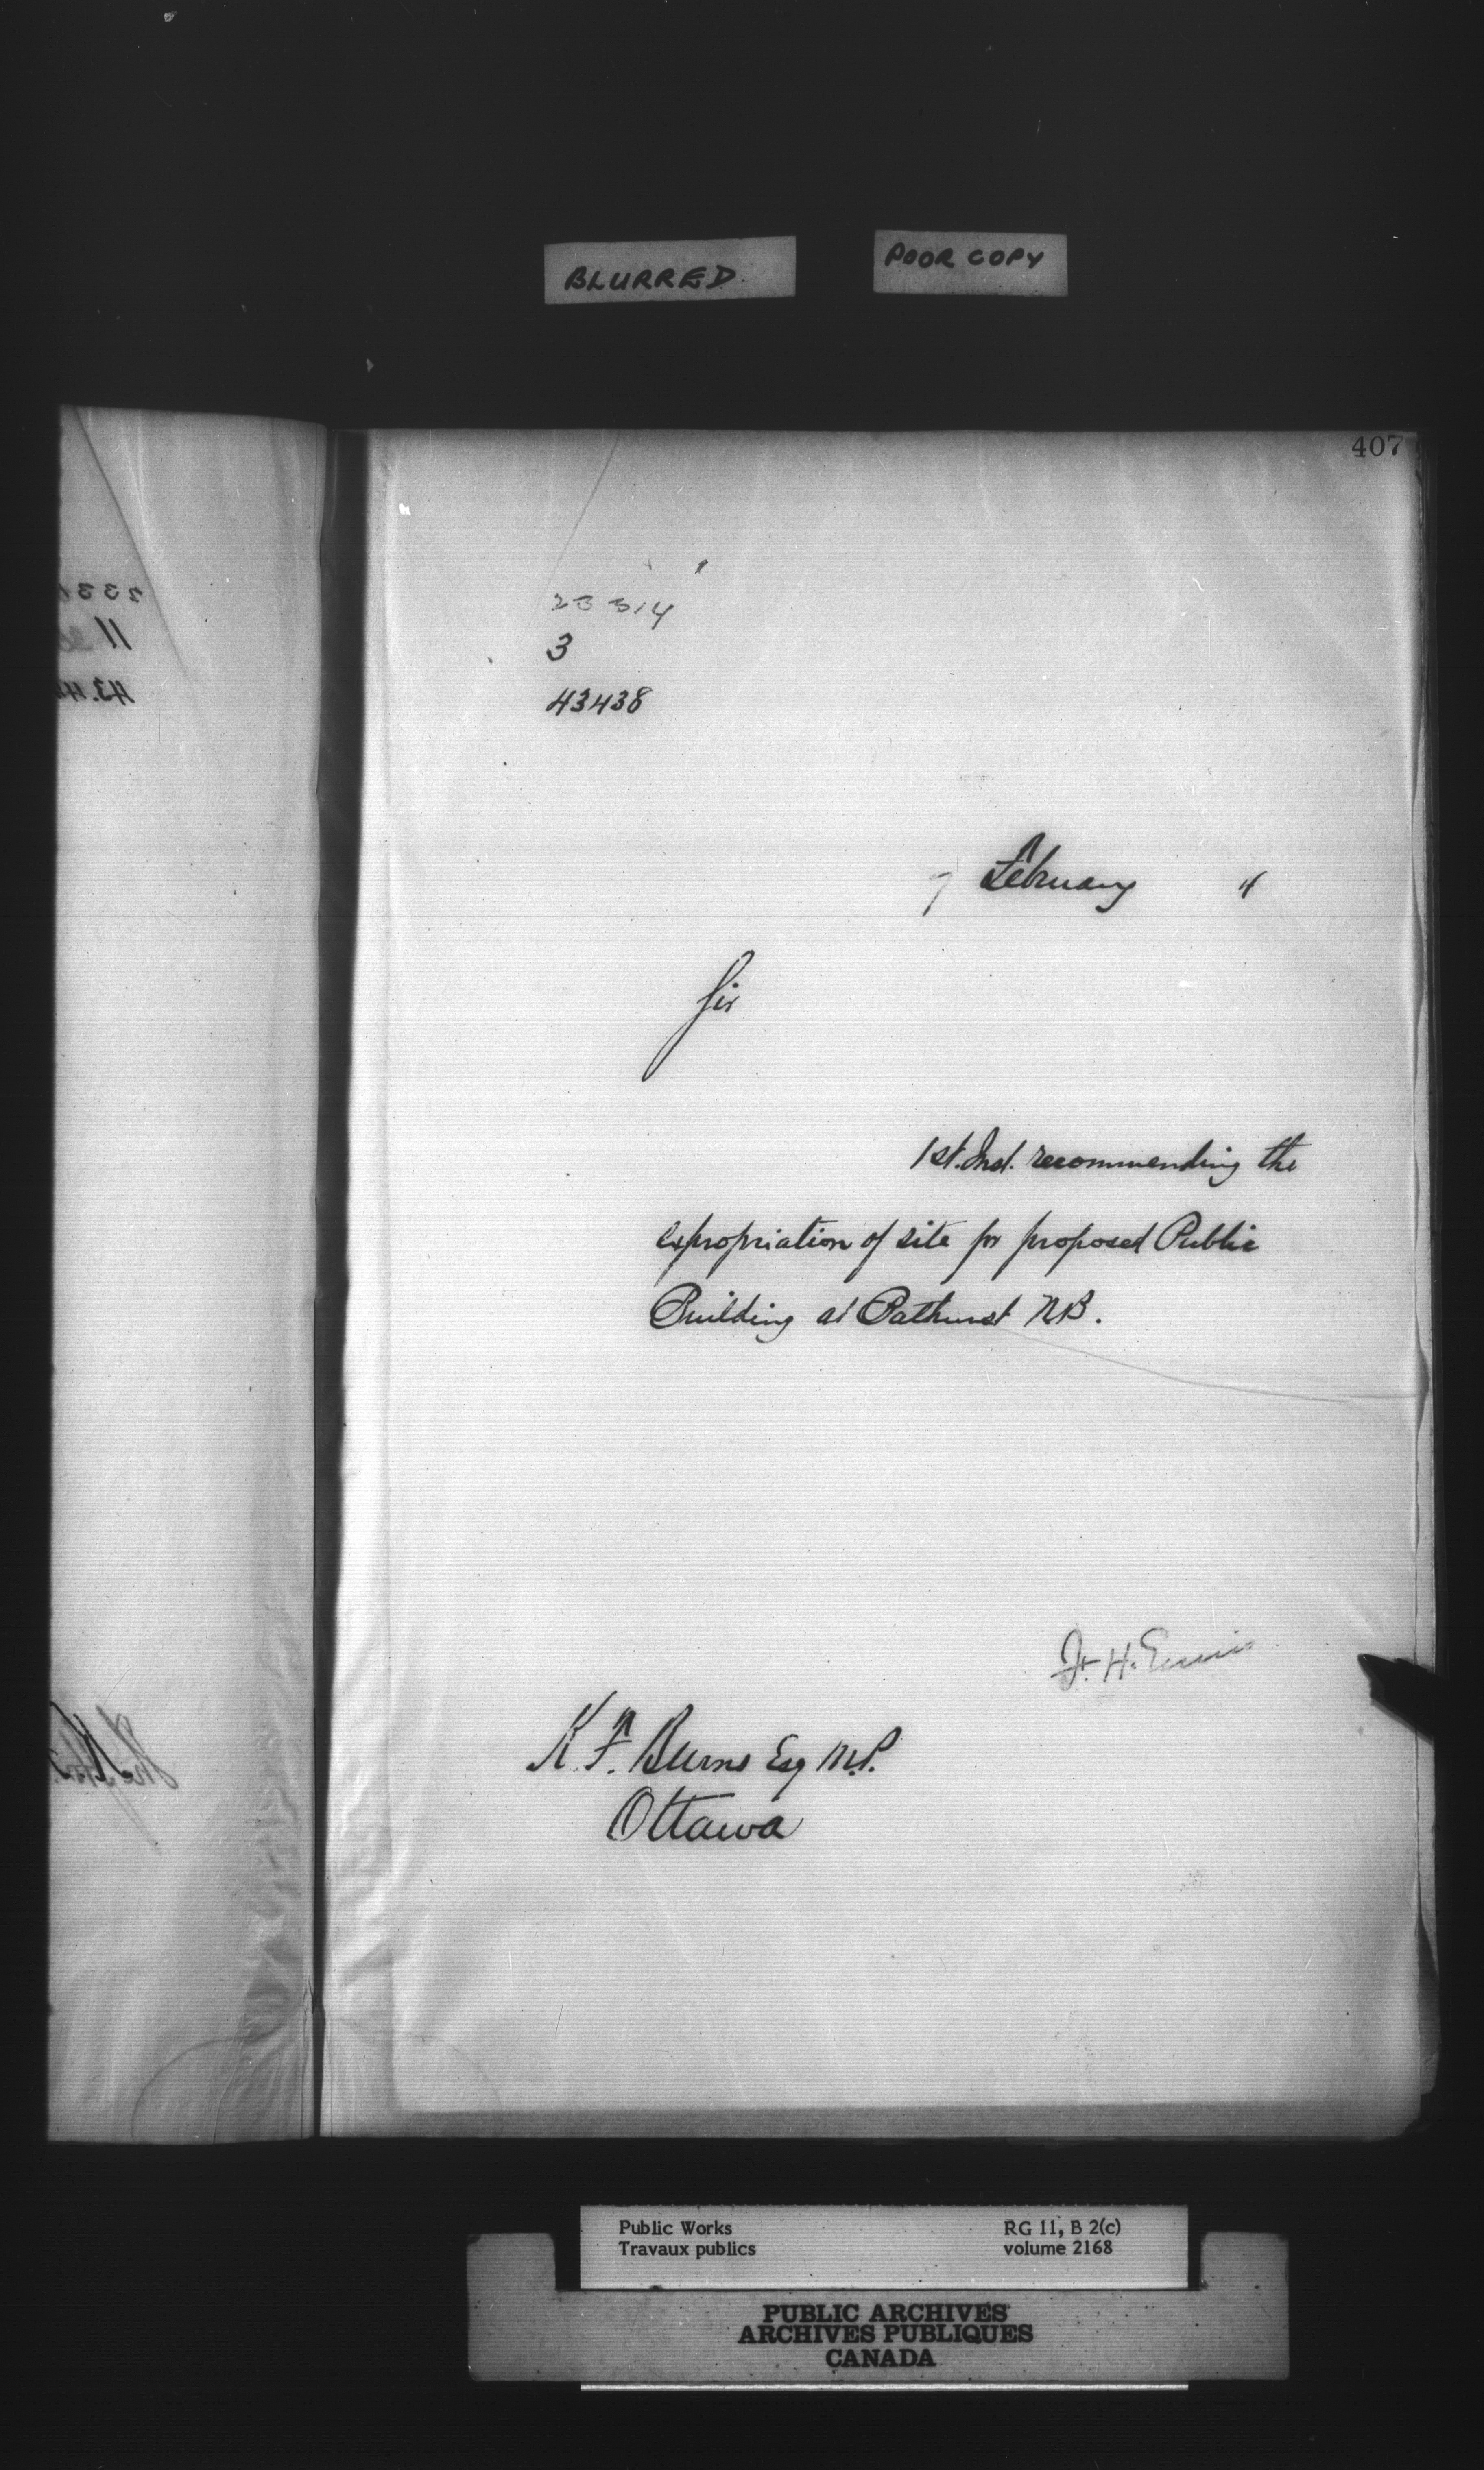 BLURRED.
POOR COPY
407
23 314
3
43438
7 February 4
Sir
1st. Inst. recommending the
expropriation of site for proposed Public
Building at Bathurst N.B.
F. H. Ennis
K. F. Burns Esq M.P.
Ottawa
Public Works
Travaux publics
RG 11, B 2(c)
volume 2168
PUBLIC ARCHIVES
ARCHIVES PUBLIQUES
CANADA